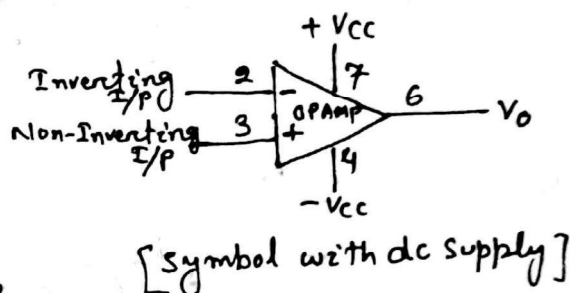 + Vcc
Inverting I/P 2 - 7
OPAMP 6 Vo
Non-Inverting I/P 3 + 4
- Vcc
[Symbol with dc supply]